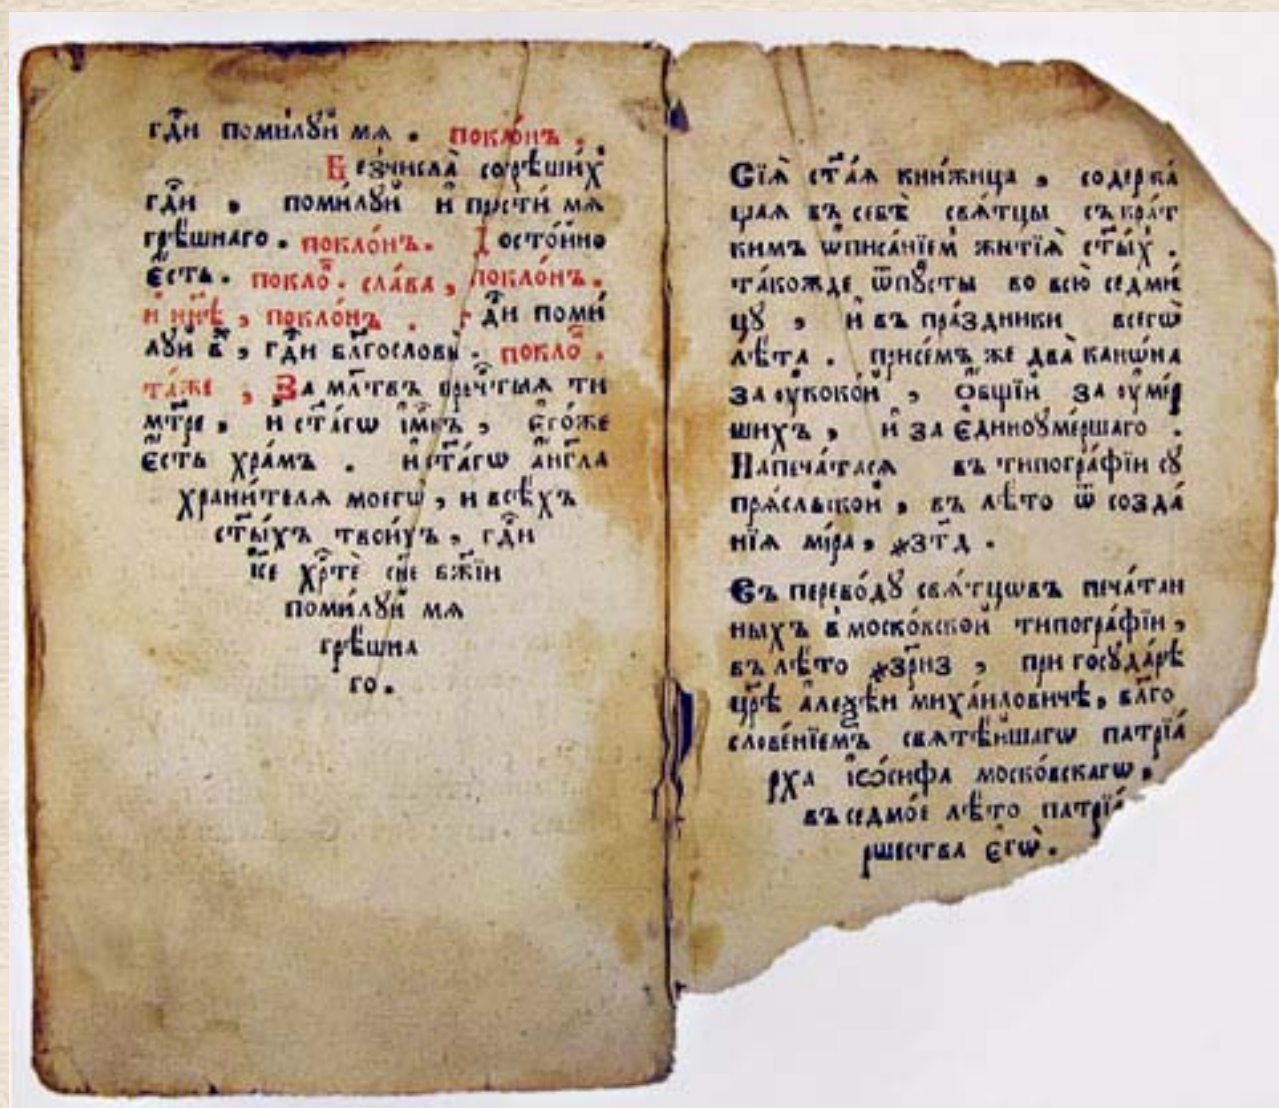 гдⷭ҇и поми́лꙋй мѧ . покло́нъ .
Без̾числа̀ согрѣши́хъ
гдⷭ҇и , поми́лꙋй и҆ прости́ мѧ
грѣ́шнаго . покло́нъ . Досто́йно
є҆́сть . покло́ⷩ . сла́ва , покло́нъ .
и҆ нн҃ѣ , покло́нъ . Гдⷭ҇и поми́
лꙋй в҃ , гдⷭ҇и блг҇ослови́ . покло́ⷩ .
та́же , За мл҃твъ преч҇тыѧ ти
мт҃ре , и҆ ст҃а́гѡ і҆мⷬ҇къ , є҆го́же
є҆́сть хра́мъ . и҆ ст҃а́гѡ а҆́нг҃ла
храни́телѧ моегѡ̀ , и всѣ́хъ
ст҃ы́хъ твои́хъ , гдⷭ҇и
і҆с҃е хрⷭ҇тѐ сн҃е бж҃їи
поми́лꙋй мѧ
грѣ́шна
го .
Сїѧ̀ ст҃а́ѧ кни́жица , содержа́
щаѧ въ себѣ̀ свѧ́тцы съ кра́т
кимъ ѡ҆писа́нїемъ житїѧ̀ ст҃ы́хъ .
та́кожде ѿпꙋсты во всю̀ седми́
цꙋ , и҆ въ пра́здники всегѡ̀
лѣ́та . присе́мъ же два̀ канѡ́на
за оу҆покой , ѻ҆́бщїй за оу҆ме́р
шихъ , и҆ за є҆диноꙋме́ршаго .
Напеча́тасѧ въ типогра́фїи сꙋ
пра́сльской , въ лѣ́то ѿ созда́
нїѧ мі́ра , ҂зт҃д .
Съ перево́дꙋ свѧ́тцѡвъ печа́тан
ныхъ в моско́вской типогра́фїи ,
въ лѣ́то ҂зрн҃з , при госꙋда́рѣ
цр҃ѣ а҆леѯѣ́и миха́иловичѣ , блг҇о
слове́нїемъ свѧтѣ́йшагѡ патрїа́
рха і҆ѡ́сифа моско́вскагѡ ,
въ седмо́е лѣ́то патрїа́
ршества є҆гѡ̀ .